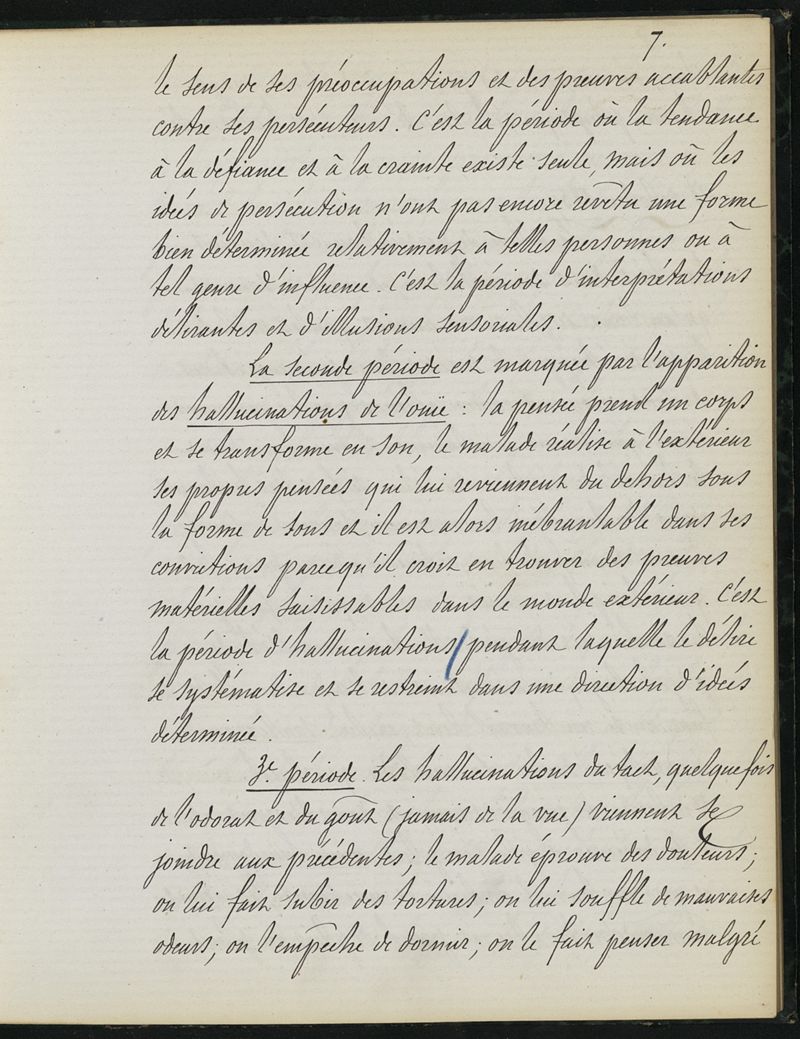 7.
le sens de ses préoccupations et des preuves accablantes
contre ses persécuteurs. C'est la période où la tendance
à la défiance et à la crainte existe seule, mais où les
idées de persécution n'ont pas encore revêtu une forme
bien déterminée relativement à telles personnes ou à
tel genre d'influence. C'est la période d'interprétations
délirantes et d'illusions sensorielles.
La seconde période est marquée par l'apparition
des hallucinations de l'ouïe : la pensée prend un corps
et se transforme en son, le malade réalise à l'extérieur
ses propres pensées qui lui reviennent du dehors sous
la forme de sons et il est alors inébranlable dans ses
convictions parce qu'il croit en trouver des preuves
matérielles saisissables dans le monde extérieur. C'est
la période d'hallucinations/pendant laquelle le délire
se systématise et se restreint dans une direction d'idées
déterminée.
3e. période. Les hallucinations du tact, quelquefois
de l'odorat et du goût (jamais de la vue) viennent se
joindre aux précédentes ; le malade éprouve des douleurs ;
on lui fait subir des tortures ; on lui souffle de mauvaises
odeurs ; on l'empêche de dormir ; on le fait penser malgré